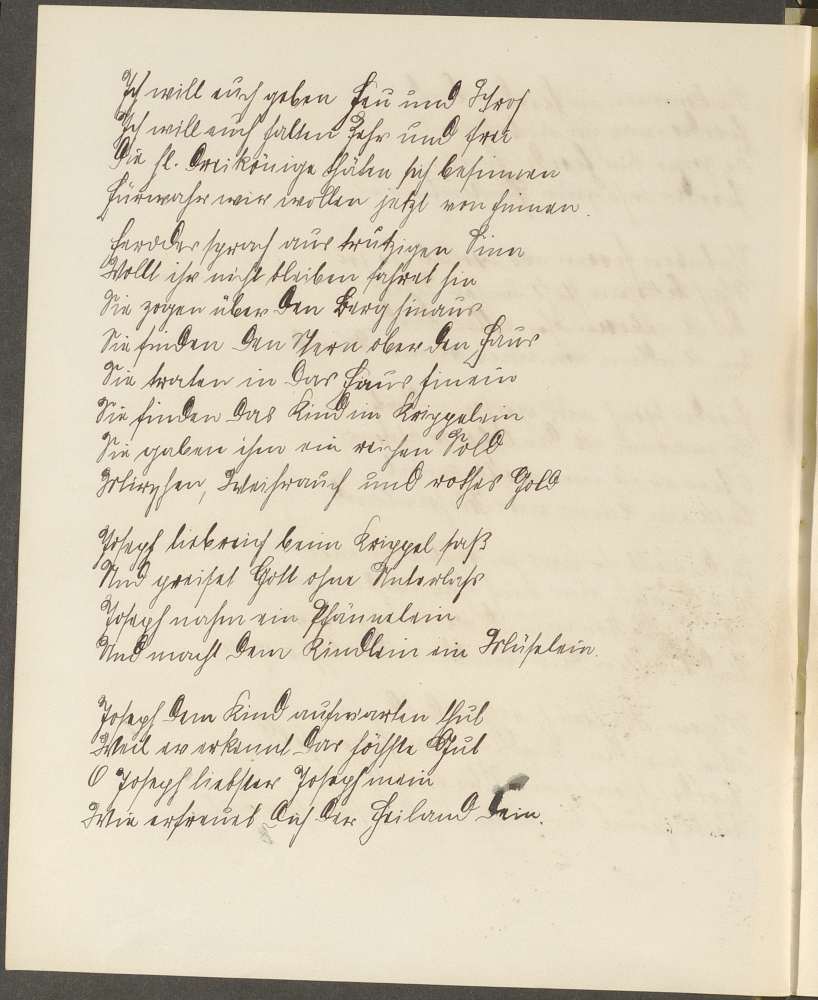 Ich will euch geben Heu und Stroh
Ich will euch halten Zehr und frei
Die hl. Dreikönige thäten sich besinnen
Fürwahr wir wollen jetzt von hinnen.
Herodes sprach aus trutzigen Sinn
Wollt ihr nicht bleiben fahret hin
Sie zogen über den Berg hinaus
Sie finden den Stern ober den Haus
Sie traten in das Haus hinein
Sie finden das Kind im Krippelein
Sie gaben ihm ein reichen Sold
Mirrhen, Weihrauch und rothes Gold
Joseph liebreich beim Krippel saß
Und preiset Gott ohne Unterlaß
Joseph nahm ein Pfännelein
Und macht dem Kindlein ein Müselein.
Joseph dem Kind aufwarten thut
Weil er erkennt das höchste Gut
O Joseph liebster Joseph mein
Wie erfreuet dich der Heiland dein.